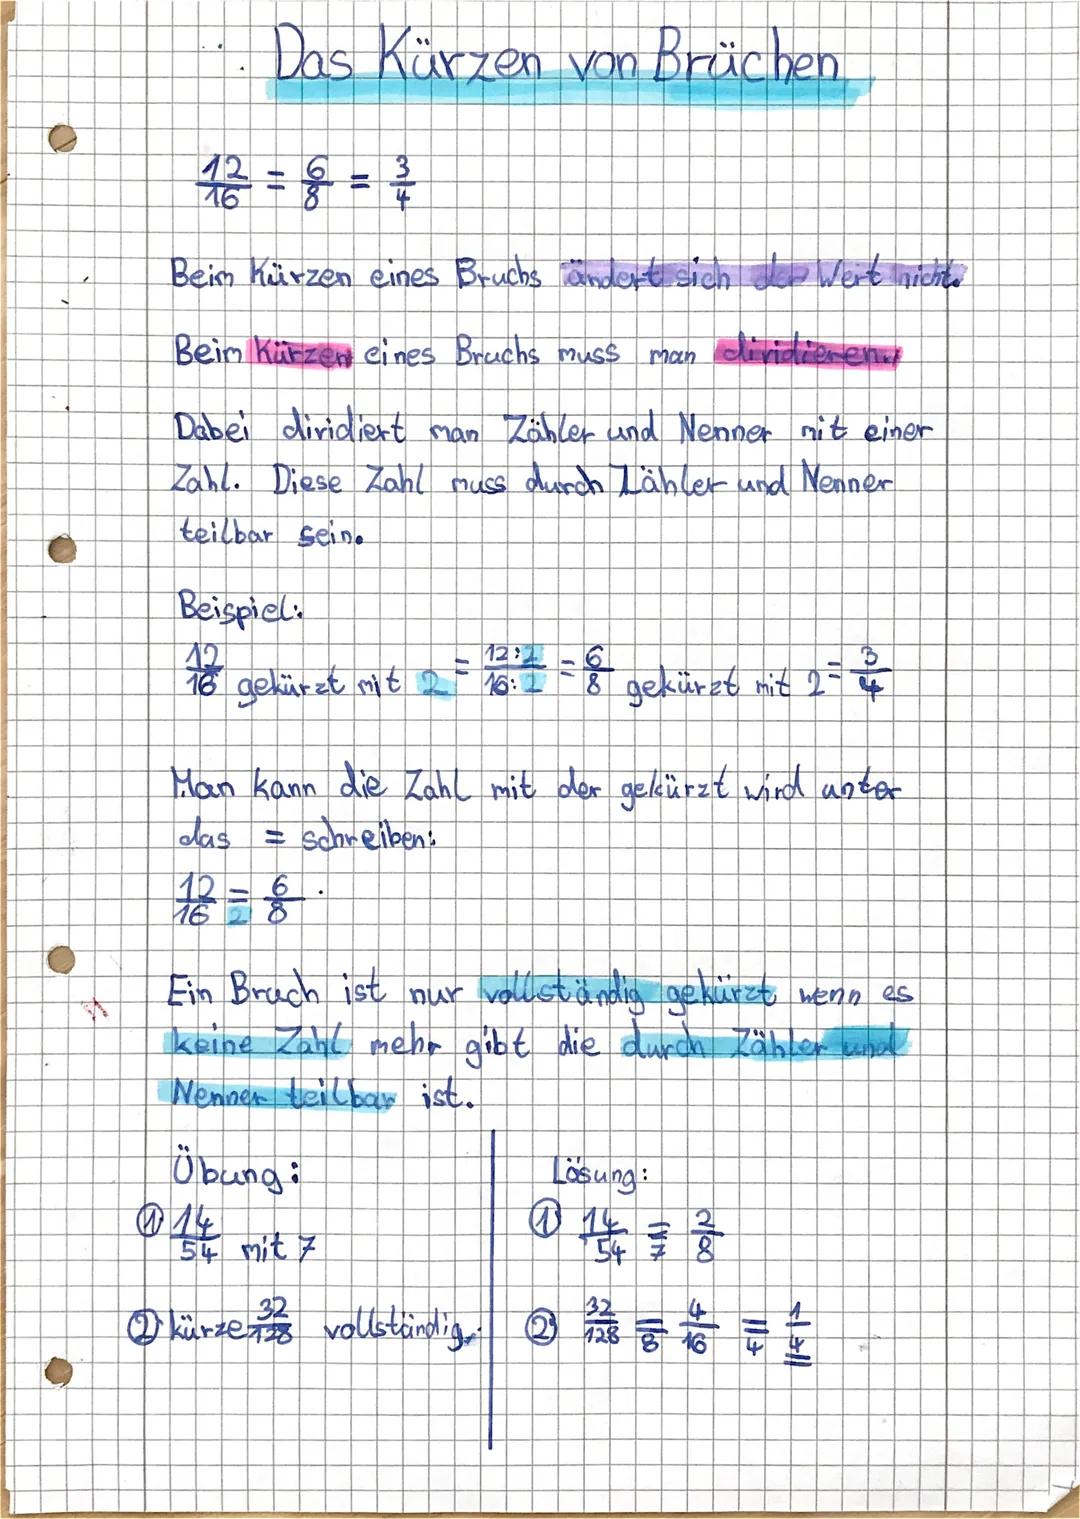 Das Kürzen von Brüchen
12/16 = 6/8 = 3/4
Beim Kürzen eines Bruchs ändert sich der Wert nicht.
Beim Kürzen eines Bruchs muss man dividieren.
Dabei dividiert man Zähler und Nenner mit einer
Zahl. Diese Zahl muss durch Zähler und Nenner
teilbar sein.
Beispiel:
12/16 gekürzt mit 2 = 12:2/16:2 = 6/8 gekürzt mit 2 = 3/4
Man kann die Zahl mit der gekürzt wird unter
das = schreiben:
12/16 =2 6/8
Ein Bruch ist nur vollständig gekürzt wenn es
keine Zahl mehr gibt die durch Zähler und
Nenner teilbar ist.
Übung:
① 14/54 mit 7
② kürze 32/128 vollständig.
Lösung:
① 14/54 =7 2/8
② 32/128 =8 4/16 =4 1/4